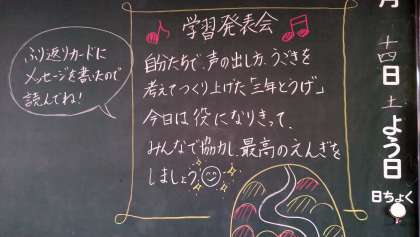 月
十四日
土よう日
日ちょく
学習発表会
自分たちで、声の出し方、うごきを
考えてつくり上げた「三年とうげ」
今日は役になりきって、
みんなで協力し、最高のえんぎを
しましょう
ふり返りカードに
メッセージを書いたので
読んでね!